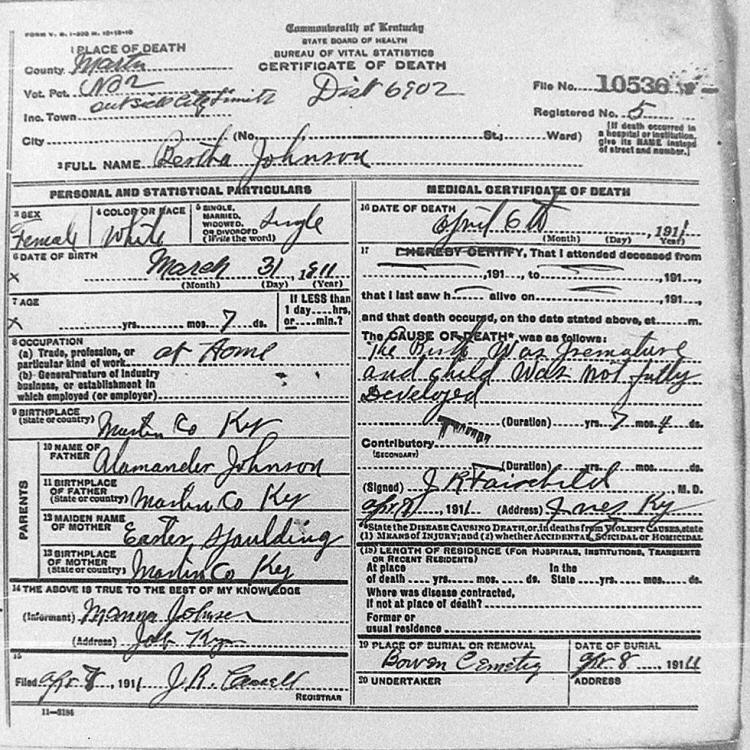 FORM V. S. 1-200 M. 12-15-10
Commonwealth of Kentucky
STATE BOARD OF HEALTH
BUREAU OF VITAL STATISTICS
CERTIFICATE OF DEATH
1 PLACE OF DEATH
County Martin
Vot. Pct. No 2
outside City Limits
Dist 6902
File No. 10536
Inc. Town
Registered No. 5
City (No. St.; Ward)
[If death occurred in a hospital or institution, give its NAME instead of street and number.]
2 FULL NAME Bertha Johnson
PERSONAL AND STATISTICAL PARTICULARS
3 SEX
Female
4 COLOR OR RACE
White
5 SINGLE, MARRIED, WIDOWED, OR DIVORCED (Write the word)
Single
6 DATE OF BIRTH
March 31 1911
(Month) (Day) (Year)
7 AGE
yrs. mos. 7 ds.
If LESS than 1 day hrs. or min.?
8 OCCUPATION
(a) Trade, profession, or particular kind of work at Home
(b) General nature of industry business, or establishment in which employed (or employer)
9 BIRTHPLACE
(State or country) Martin Co Ky
PARENTS
10 NAME OF FATHER
Alamander Johnson
11 BIRTHPLACE OF FATHER
(State or country) Martin Co Ky
12 MAIDEN NAME OF MOTHER
Easter Spaulding
13 BIRTHPLACE OF MOTHER
(State or country) Martin Co Ky
14 THE ABOVE IS TRUE TO THE BEST OF MY KNOWLEDGE
(Informant) Johnson
(Address) Job Ky
15
Filed Apr 8, 1911 J. R. Cassell
REGISTRAR
11-3184
MEDICAL CERTIFICATE OF DEATH
16 DATE OF DEATH
April 6th, 1911
(Month) (Day) Year)
17 I HEREBY CERTIFY, That I attended deceased from
, 191 , to , 191 ,
that I last saw h alive on , 191 ,
and that death occured, on the date stated above, at m.
The CAUSE OF DEATH* was as follows:
The Birth Was Premature
and child Was not fully
Developed
(Duration) yrs. 7 mos. 4 ds.
Contributory
(SECONDARY)
(Duration) yrs. mos. ds.
(Signed) J R Fairchild M. D.
Apr 8, 1911 (Address) Inez Ky
*State the DISEASE CAUSING DEATH, or, in deaths from VIOLENT CAUSES, state
(1) MEANS OF INJURY; and (2) whether ACCIDENTAL, SUICIDAL or HOMICIDAL
(18) LENGTH OF RESIDENCE (FOR HOSPITALS, INSTITUTIONS, TRANSIENTS OR RECENT RESIDENTS)
At place of death yrs. mos. ds. In the State yrs. mos. ds.
Where was disease contracted,
If not at place of death?
Former or
usual residence
19 PLACE OF BURIAL OR REMOVAL
Bowen Cemetry
DATE OF BURIAL
Apr. 8, 1911
20 UNDERTAKER
ADDRESS